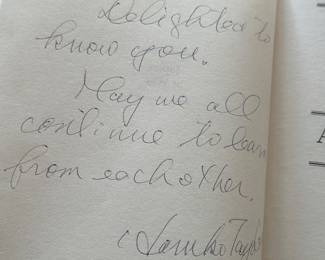 Delighted to
know you.
May we all
continue to learn
from each other.
A